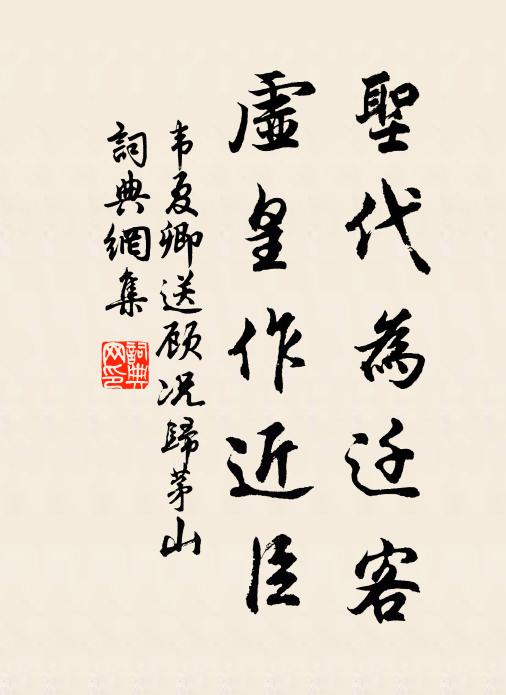 聖代為迁客
虛皇作近臣
韦夏卿送顾况歸茅山
詞典網集
詞典網印